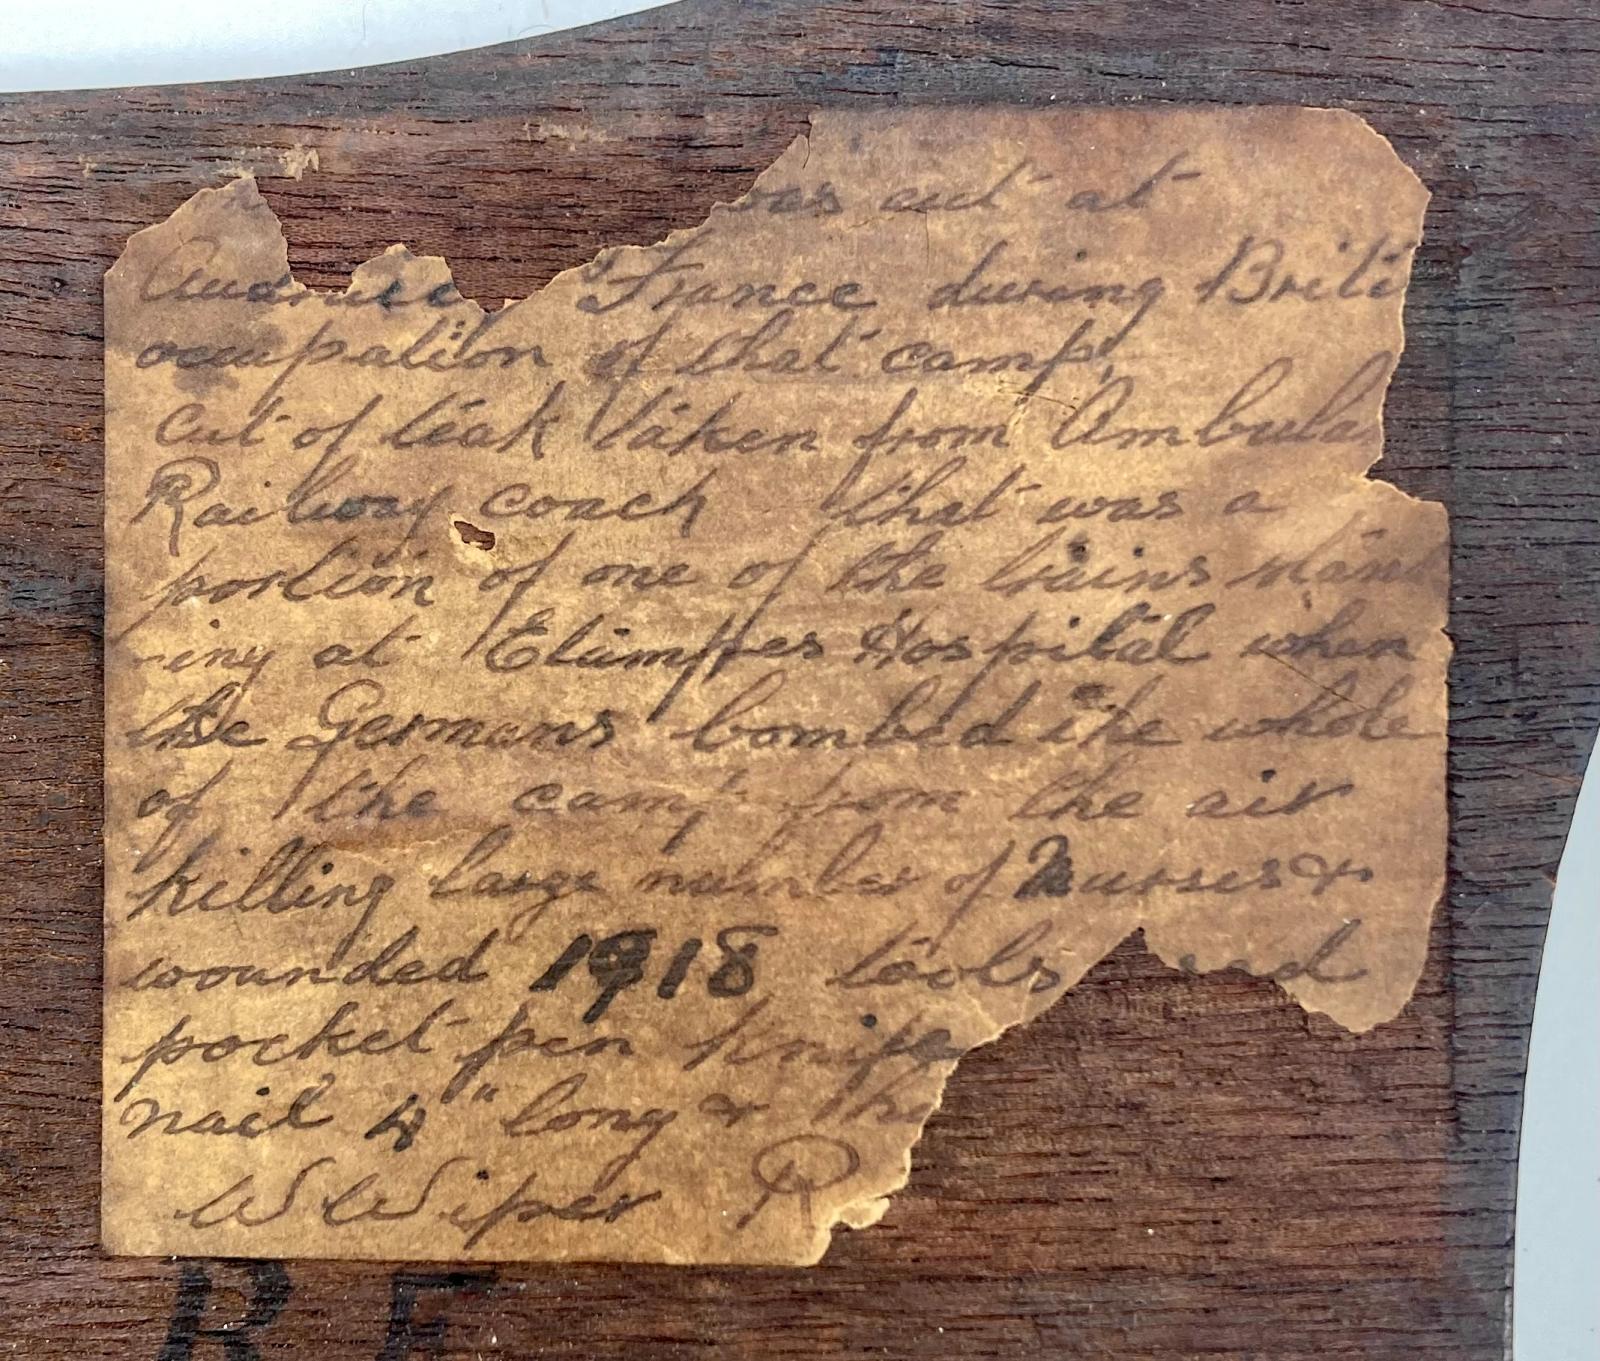 was cut at
Audruicq France during Briti
occupation of that camp,
Cut of teak taken from Ambula
Railway coach that was a
portion of one of the trains stand
-ing at Etampes Hospital when
the Germans bombed the whole
of the camp from the air
killing large number of Nurses &
wounded 1918 tools
pocket pen knife
nail 4" long & the
W Wiper R
R E